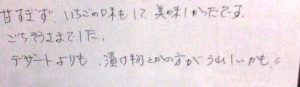 甘すぎず、いちごの味もして美味しかったです。
ごちそうさまでした。
デザートよりも、漬け物とかの方がうれしいかも。